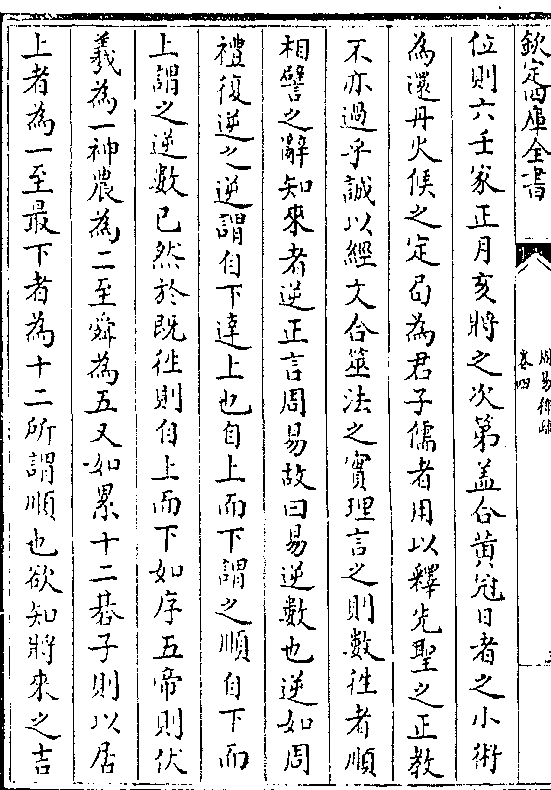 欽定四庫全書
周易稗疏
卷四
位則六壬家正月亥將之次第盖合黄冠日者之小術
為還丹火候之定局為君子儒者用以釋先聖之正教
不亦過乎誠以經文合筮法之實理言之則數徃者順
相譬之辭知來者逆正言周易故曰易逆數也逆如周
禮復逆之逆謂自下達上也自上而下謂之順自下而
上謂之逆數已然於既徃則自上而下如序五帝則伏
羲為一神農為二至舜為五又如累十二碁子則以居
上者為一至最下者為十二所謂順也欲知將來之吉